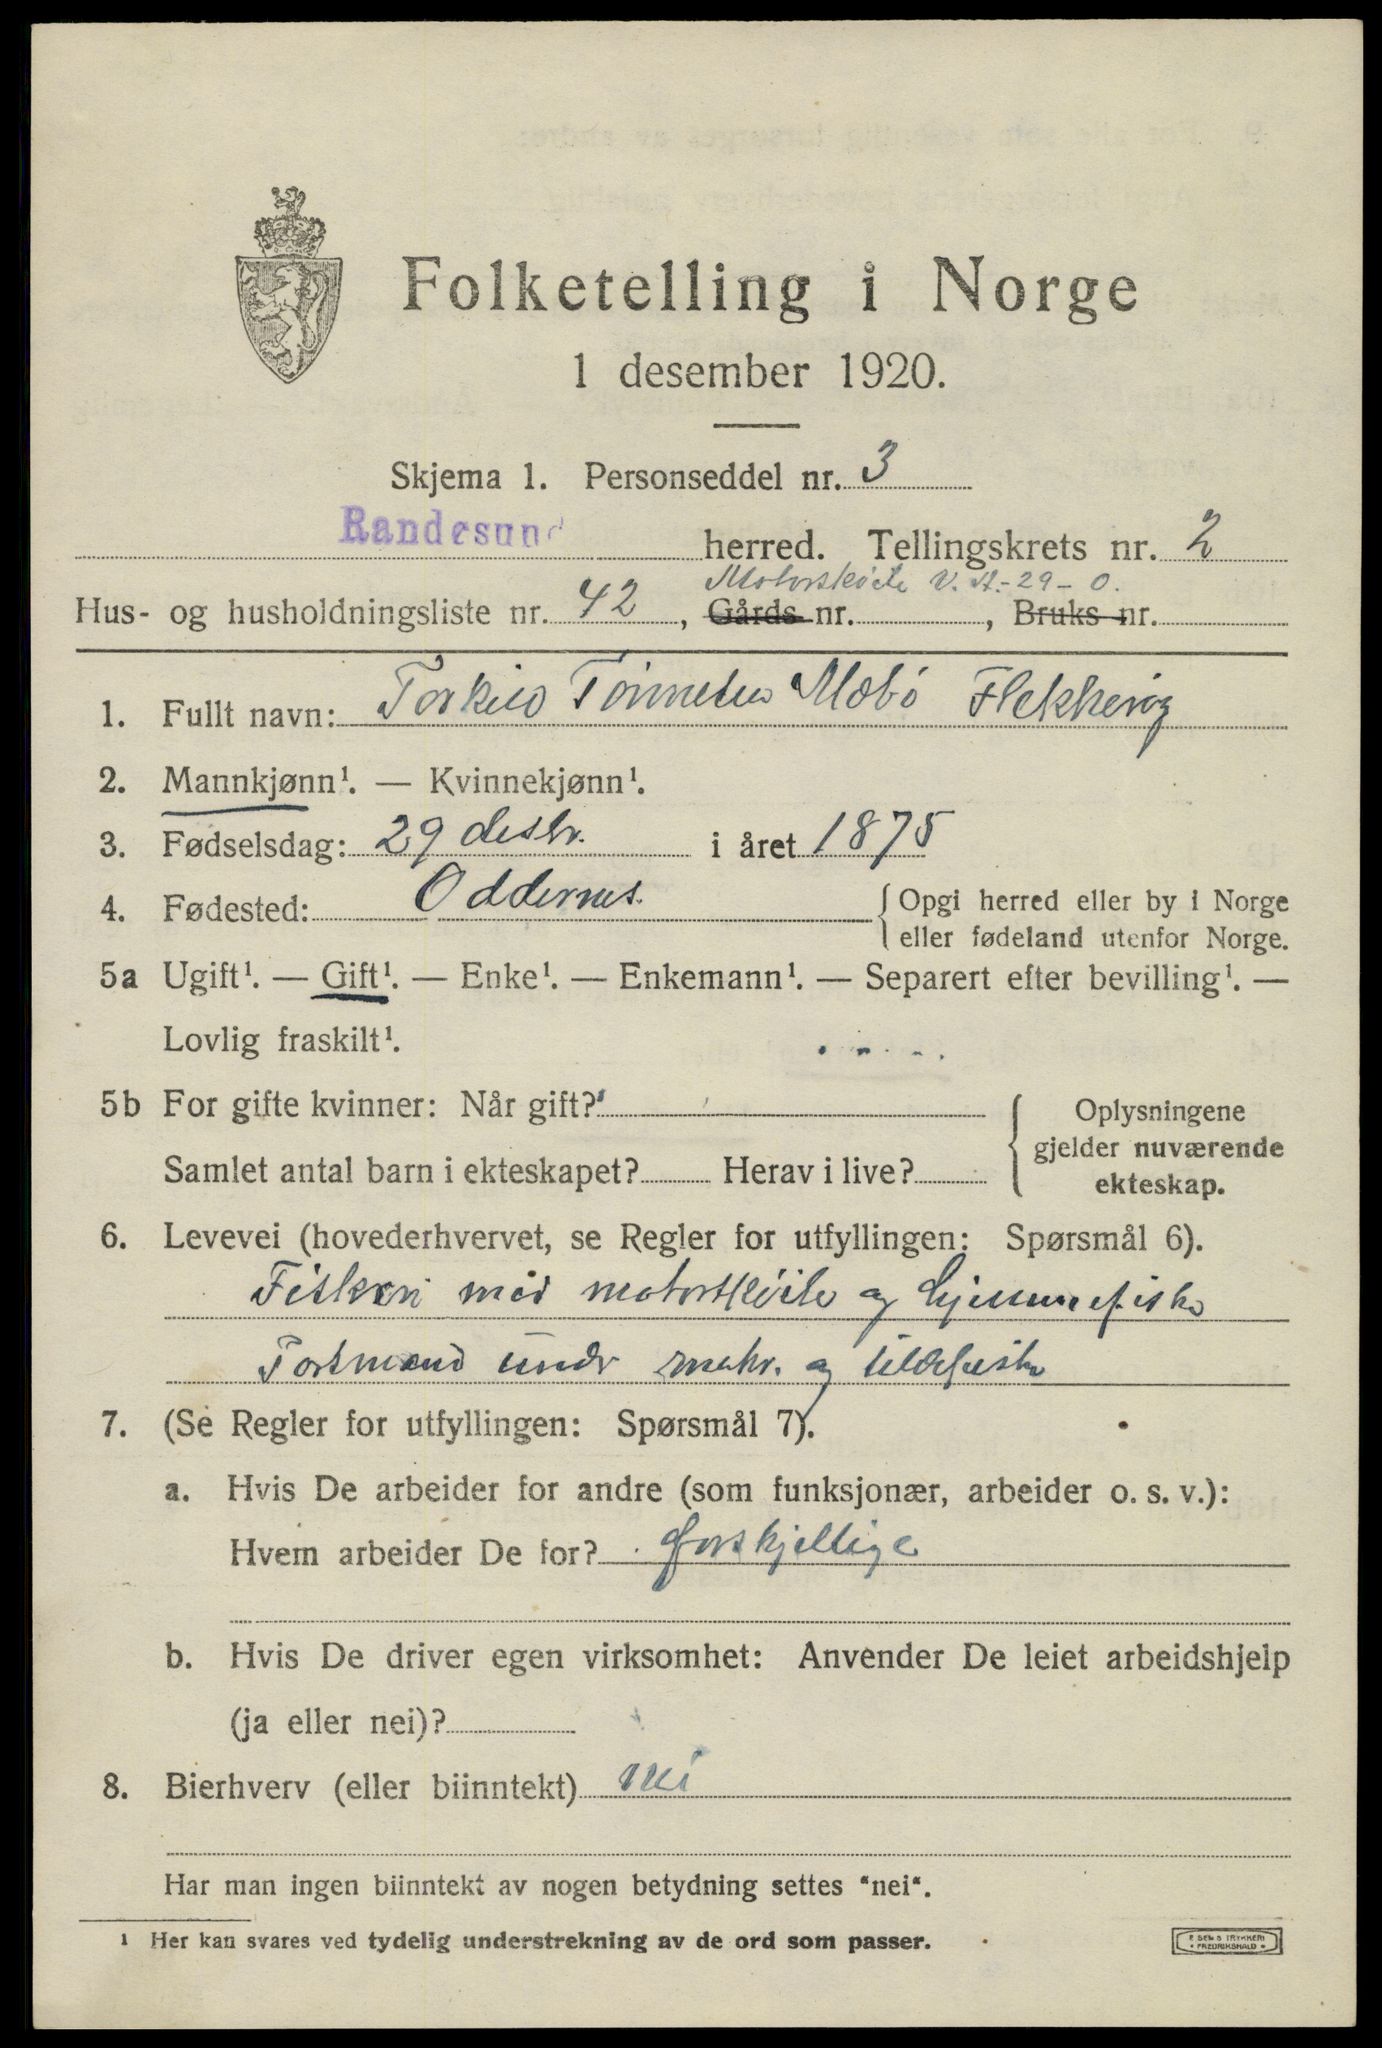 Folketelling i Norge
1 desember 1920.
Skjema 1. Personseddel nr. 3
Randesund herred. Tellingskrets nr. 2
Motorskøite V. A.-29-O.
Hus- og husholdningsliste nr. 42, Gårds nr. , Bruks nr.
1. Fullt navn: Torkild Tønnesen Mæbø Flekkerøy
2. Mannkjønn¹. — Kvinnekjønn¹.
3. Fødselsdag: 29 desbr. i året 1875
4. Fødested: Oddernes. { Opgi herred eller by i Norge
eller fødeland utenfor Norge.
5a Ugift¹. — Gift¹. — Enke¹. — Enkemann¹. — Separert efter bevilling¹. —
Lovlig fraskilt¹.
5b For gifte kvinner: Når gift?
Samlet antal barn i ekteskapet? Herav i live?
{ Oplysningene
gjelder nuværende
ekteskap.
6. Levevei (hovederhvervet, se Regler for utfyllingen: Spørsmål 6).
Fiskeri med motorskøite og hjemmefiske
under makr. og sildefiske
7. (Se Regler for utfyllingen: Spørsmål 7).
a. Hvis De arbeider for andre (som funksjonær, arbeider o. s. v.):
Hvem arbeider De for? forskjellige
b. Hvis De driver egen virksomhet: Anvender De leiet arbeidshjelp
(ja eller nei)?
8. Bierhverv (eller biinntekt) nei
Har man ingen biinntekt av nogen betydning settes "nei".
¹ Her kan svares ved tydelig understrekning av de ord som passer.
E. SEM S TRYKKERI
• FREDRIKSHALD •